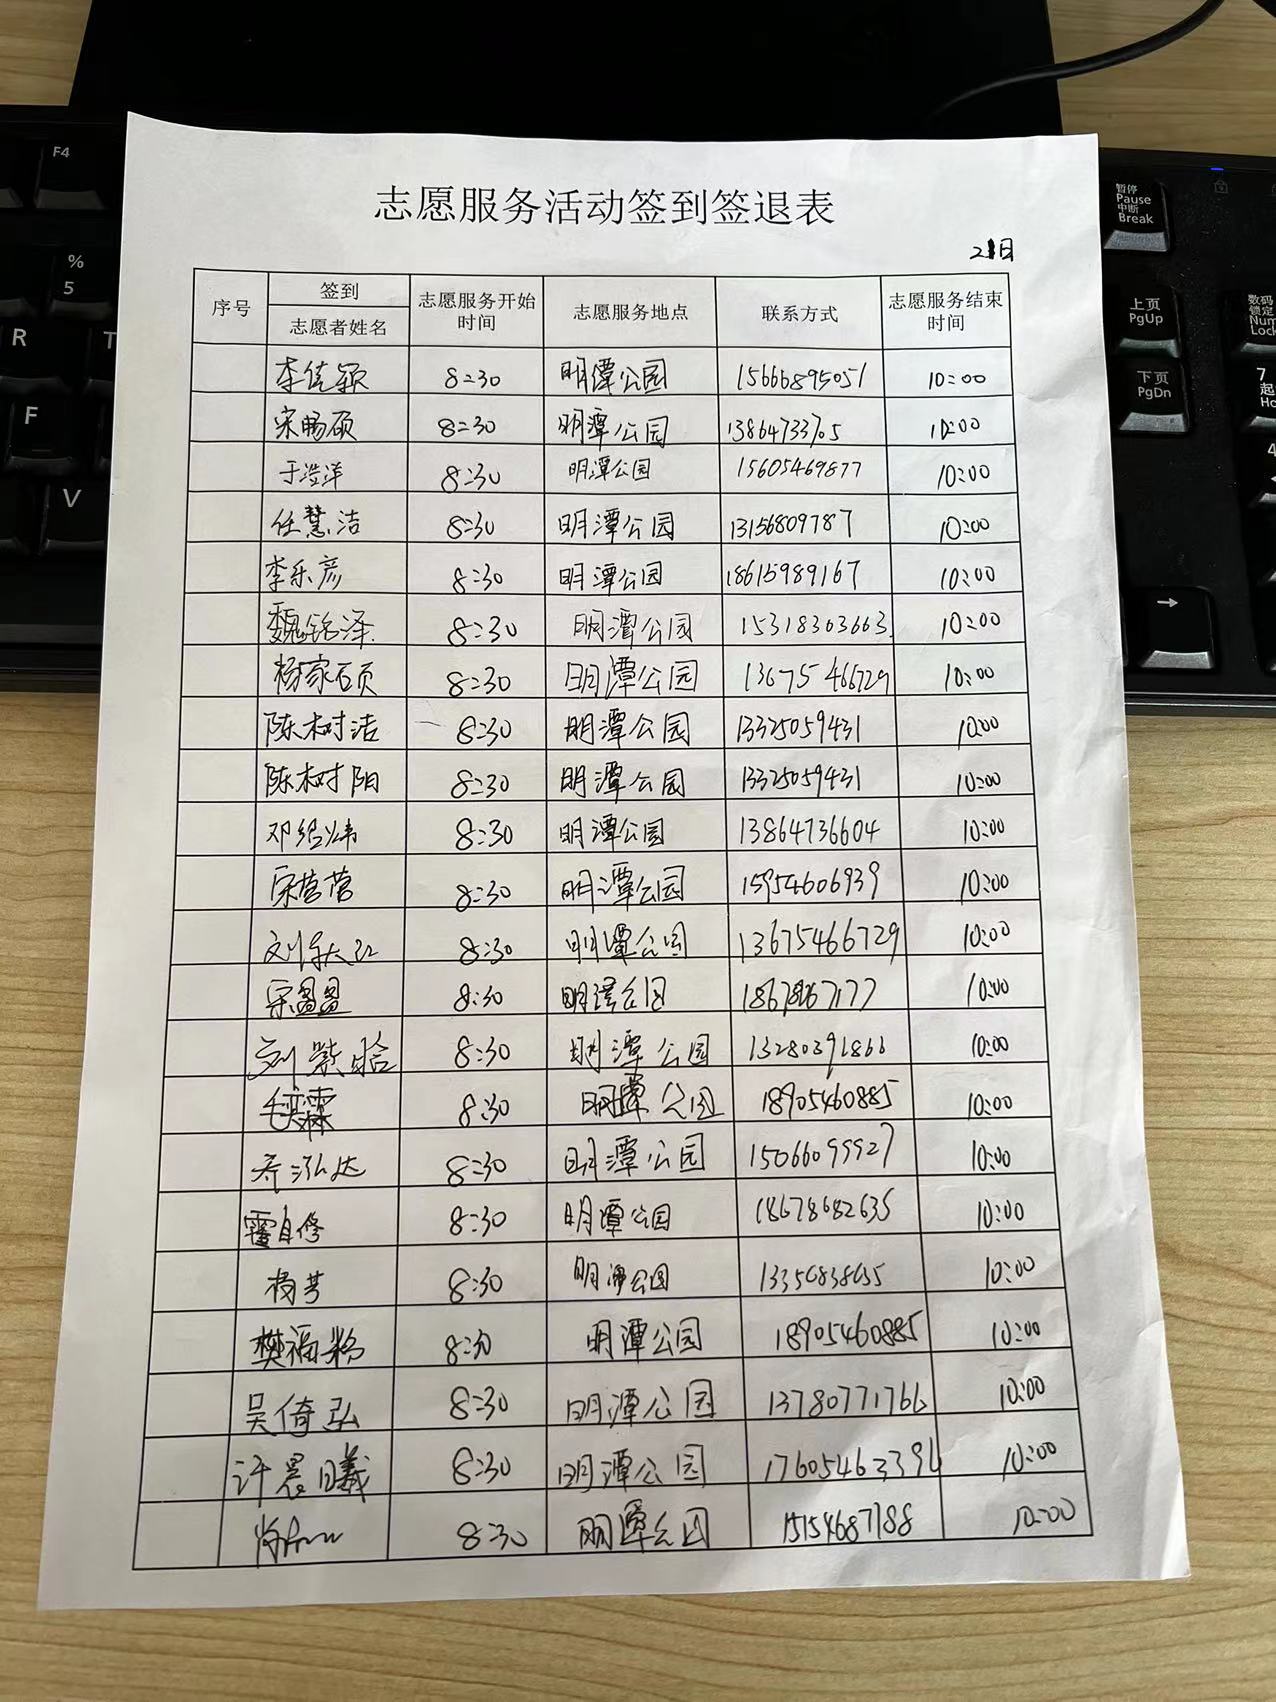 志愿服务活动签到签退表
21日
序号 签到 志愿者姓名 志愿服务开始时间 志愿服务地点 联系方式 志愿服务结束时间
李佳颖 8:30 明潭公园 15666895051 10:00
宋赐硕 8:30 明潭公园 13864733705 10:00
于浩洋 8:30 明潭公园 15605469877 10:00
任慧洁 8:30 明潭公园 13156809787 10:00
李乐彦 8:30 明潭公园 18615989167 10:00
魏铭泽 8:30 明潭公园 15318303663 10:00
杨家硕 8:30 明潭公园 13675466729 10:00
陈树洁 8:30 明潭公园 13325059431 10:00
陈树阳 8:30 明潭公园 13325059431 10:00
邓绍炜 8:30 明潭公园 13864736604 10:00
宋营营 8:30 明潭公园 15954606939 10:00
8:30 明潭公园 13675466729 10:00
宋盈盈 8:30 明潭公园 10:00
刘紫晗 8:30 明潭公园 13280391866 10:00
毛奕霖 8:30 明潭公园 18905460885 10:00
乔泓达 8:30 明潭公园 15066099927 10:00
霍自修 8:30 明潭公园 18678682635 10:00
杨芳 8:30 明潭公园 10:00
樊福粉 8:30 明潭公园 18905460885 10:00
吴倚弘 8:30 明潭公园 13780771766 10:00
许晨曦 8:30 明潭公园 17605463391 10:00
8:30 明潭公园 15154687188 10:00
F4
%
5
R
T
F
V
暂停
Pause
中断
Break
上页
PgUp
下页
PgDn
数码
锁定
Num
Lock
7
4
→